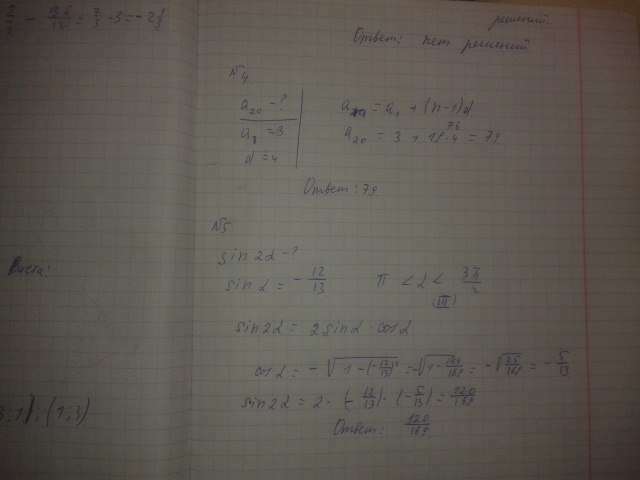 решений.
Ответ: нет решений
№4
a₂₀ - ?
a₁ = 3
d = 4
aₙ = a₁ + (n-1)d
a₂₀ = 3 + 19·4 = 79
76
Ответ: 79
№5
sin2α - ?
sinα = - 12/13
π < α < 3π/2
(III)
sin2α = 2sinα · cosα
cosα = - √(1-(-12/13)²) = -√(1-144/169) = -√(25/169) = - 5/13
sin2α = 2 · (- 12/13) · (- 5/13) = 120/169
Ответ: 120/169